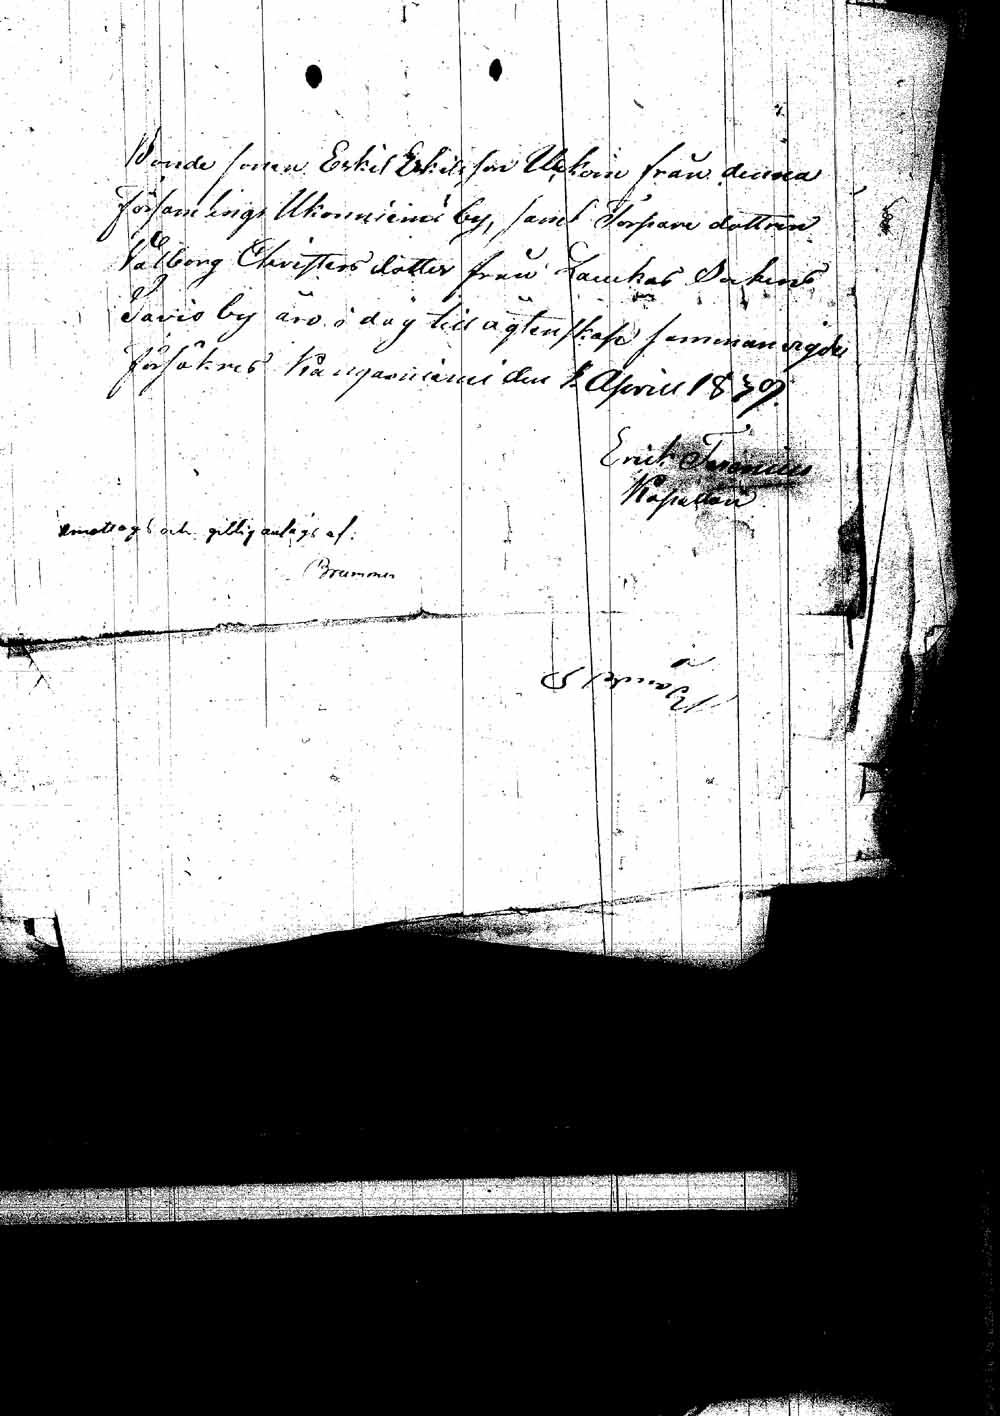 Bonde sonen Eskil Eskilsson Ukkoin från denna
Församlings Ukonniemi by, samt Torpare dottren
Valborg Christers dotter från Laukas Sockens
Tavio by äro i dag till ägtenskap sammanvigde
försäkras Kangasniemi den 1 Aprill 1839.
Erick
Kapellan
emottagit och giltig antagit af:
Brummer